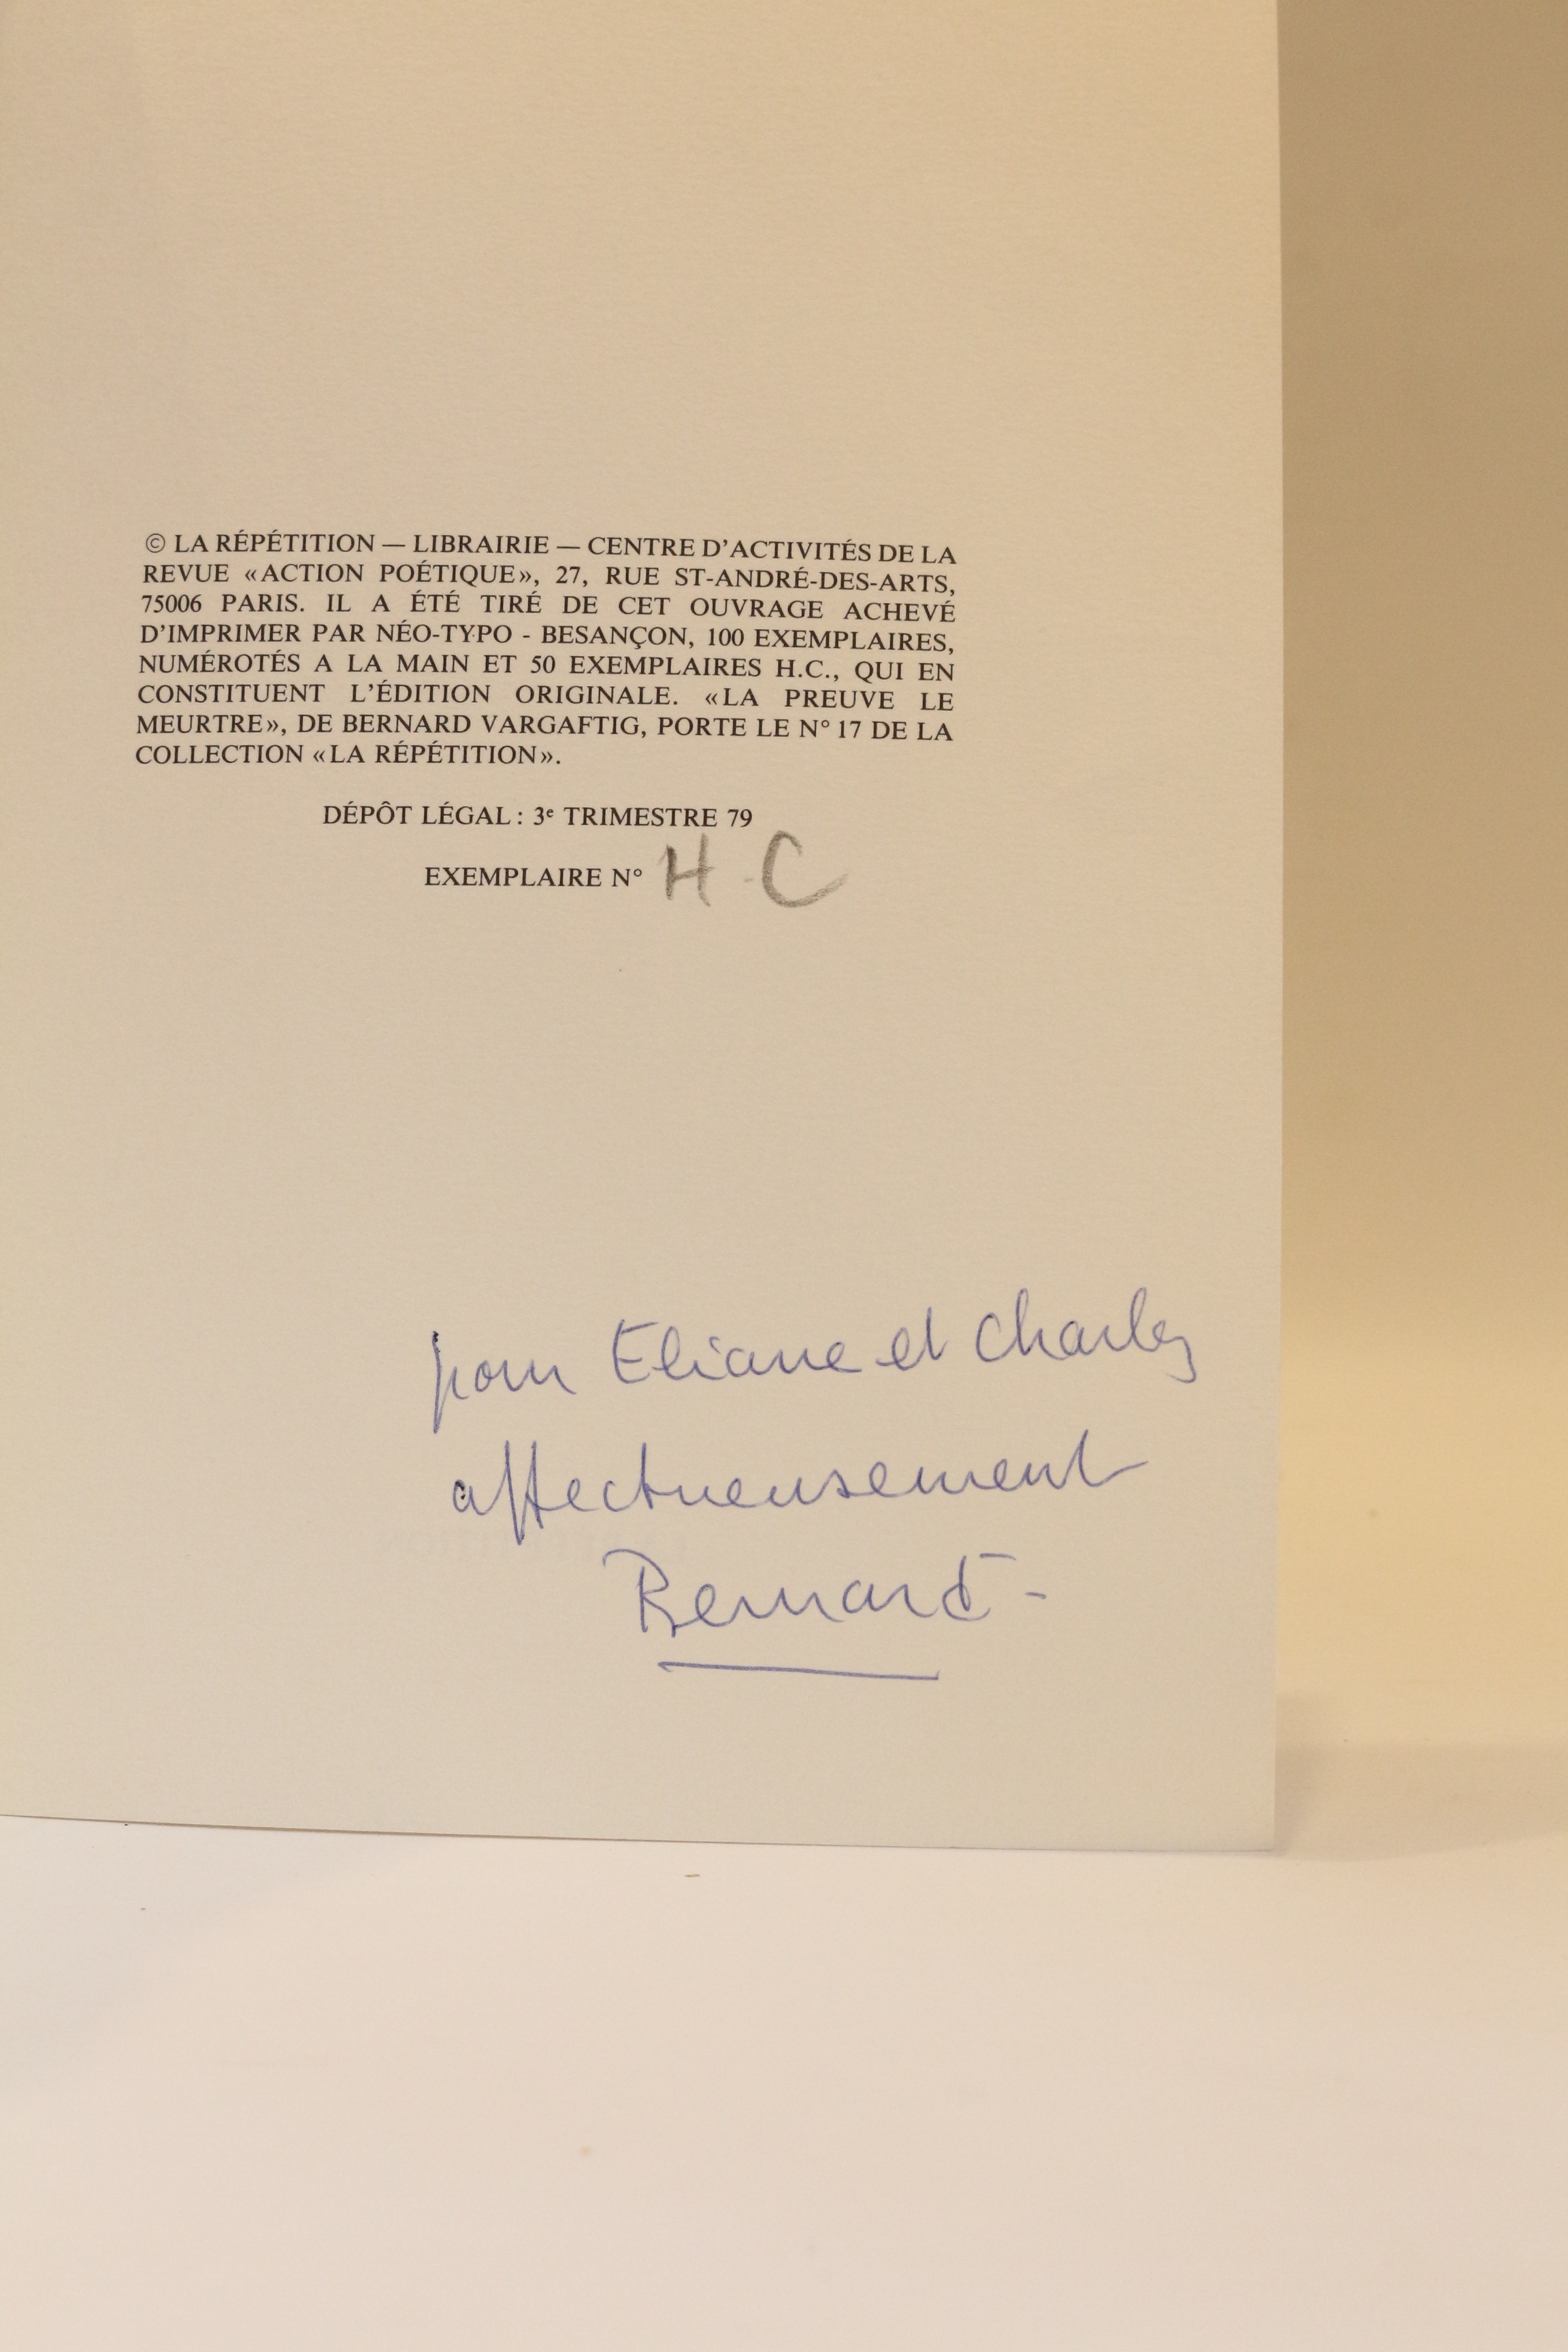 © LA RÉPÉTITION — LIBRAIRIE — CENTRE D'ACTIVITÉS DE LA
REVUE «ACTION POÉTIQUE», 27, RUE ST-ANDRÉ-DES-ARTS,
75006 PARIS. IL A ÉTÉ TIRÉ DE CET OUVRAGE ACHEVÉ
D'IMPRIMER PAR NÉO-TYPO - BESANÇON, 100 EXEMPLAIRES,
NUMÉROTÉS A LA MAIN ET 50 EXEMPLAIRES H.C., QUI EN
CONSTITUENT L'ÉDITION ORIGINALE. «LA PREUVE LE
MEURTRE», DE BERNARD VARGAFTIG, PORTE LE N° 17 DE LA
COLLECTION «LA RÉPÉTITION».
DÉPÔT LÉGAL : 3e TRIMESTRE 79
EXEMPLAIRE N° H-C
pour Eliane et Charles
affectueusement
Bernard -